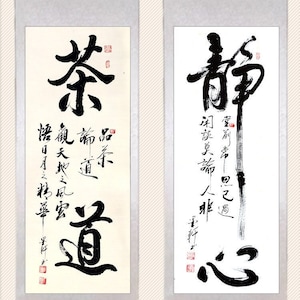 茶道
品茶
論道
觀天地之風雲
悟日月之精華
靜心
靜前常思己過
閑談莫論人非